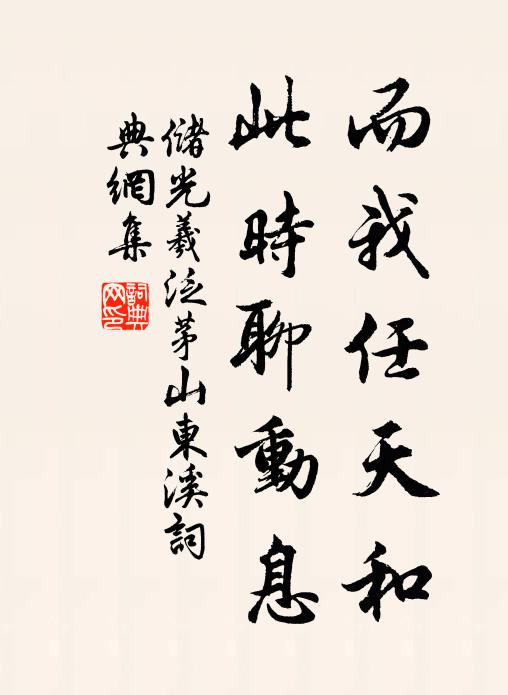 而我任天和
此時聊動息
儲光羲泛茅山東溪詞
典網集
詞典
网印